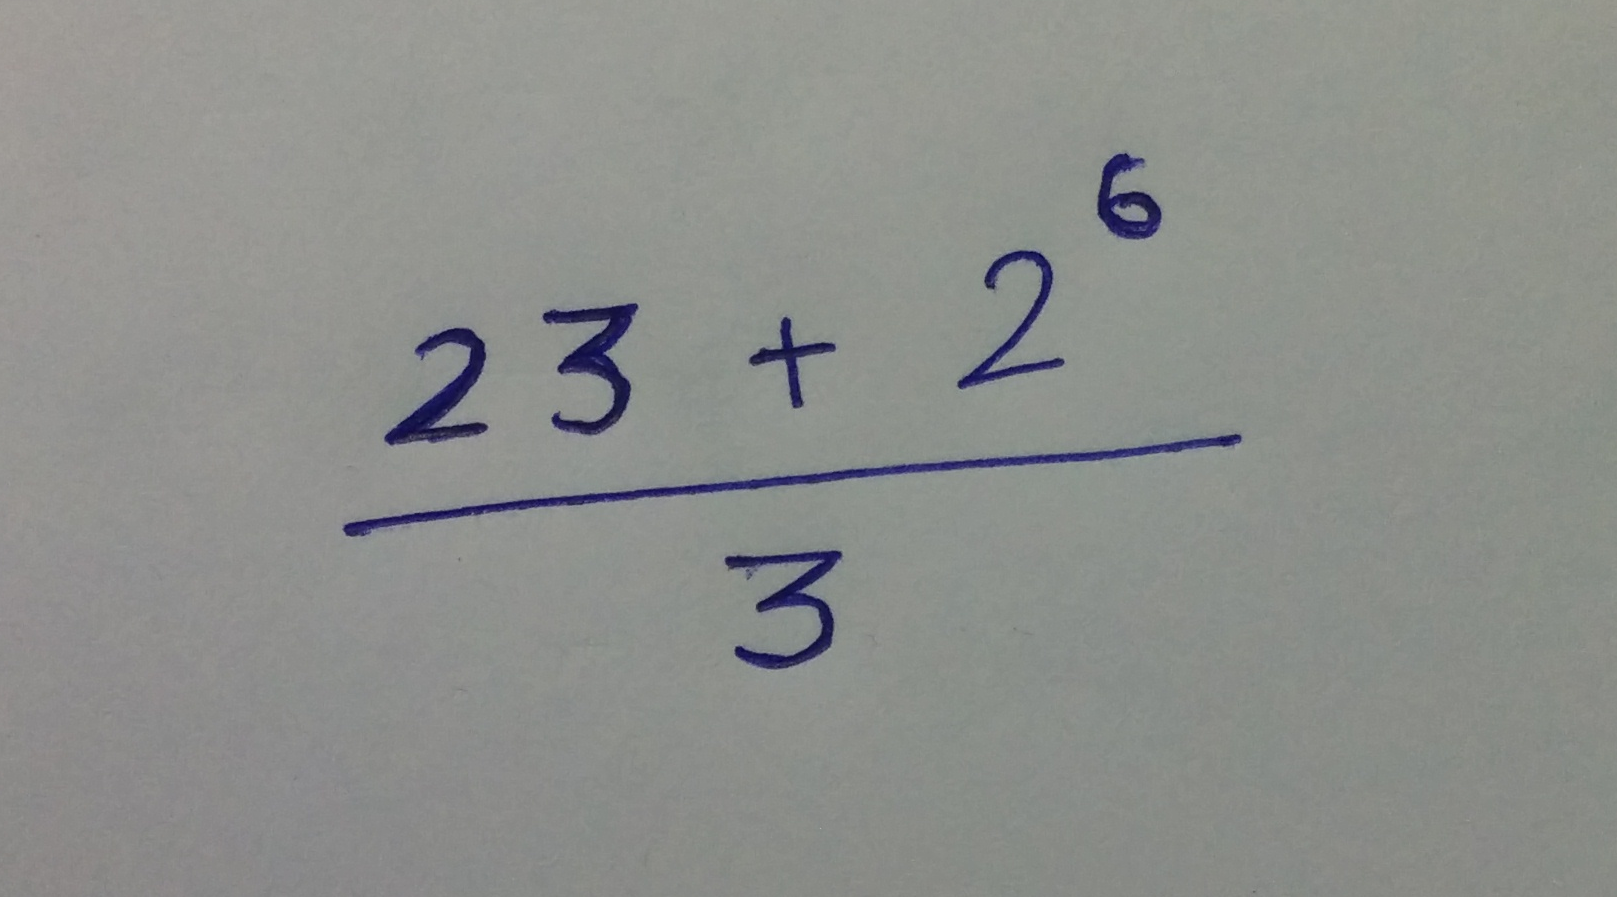 23 + 2⁶
3